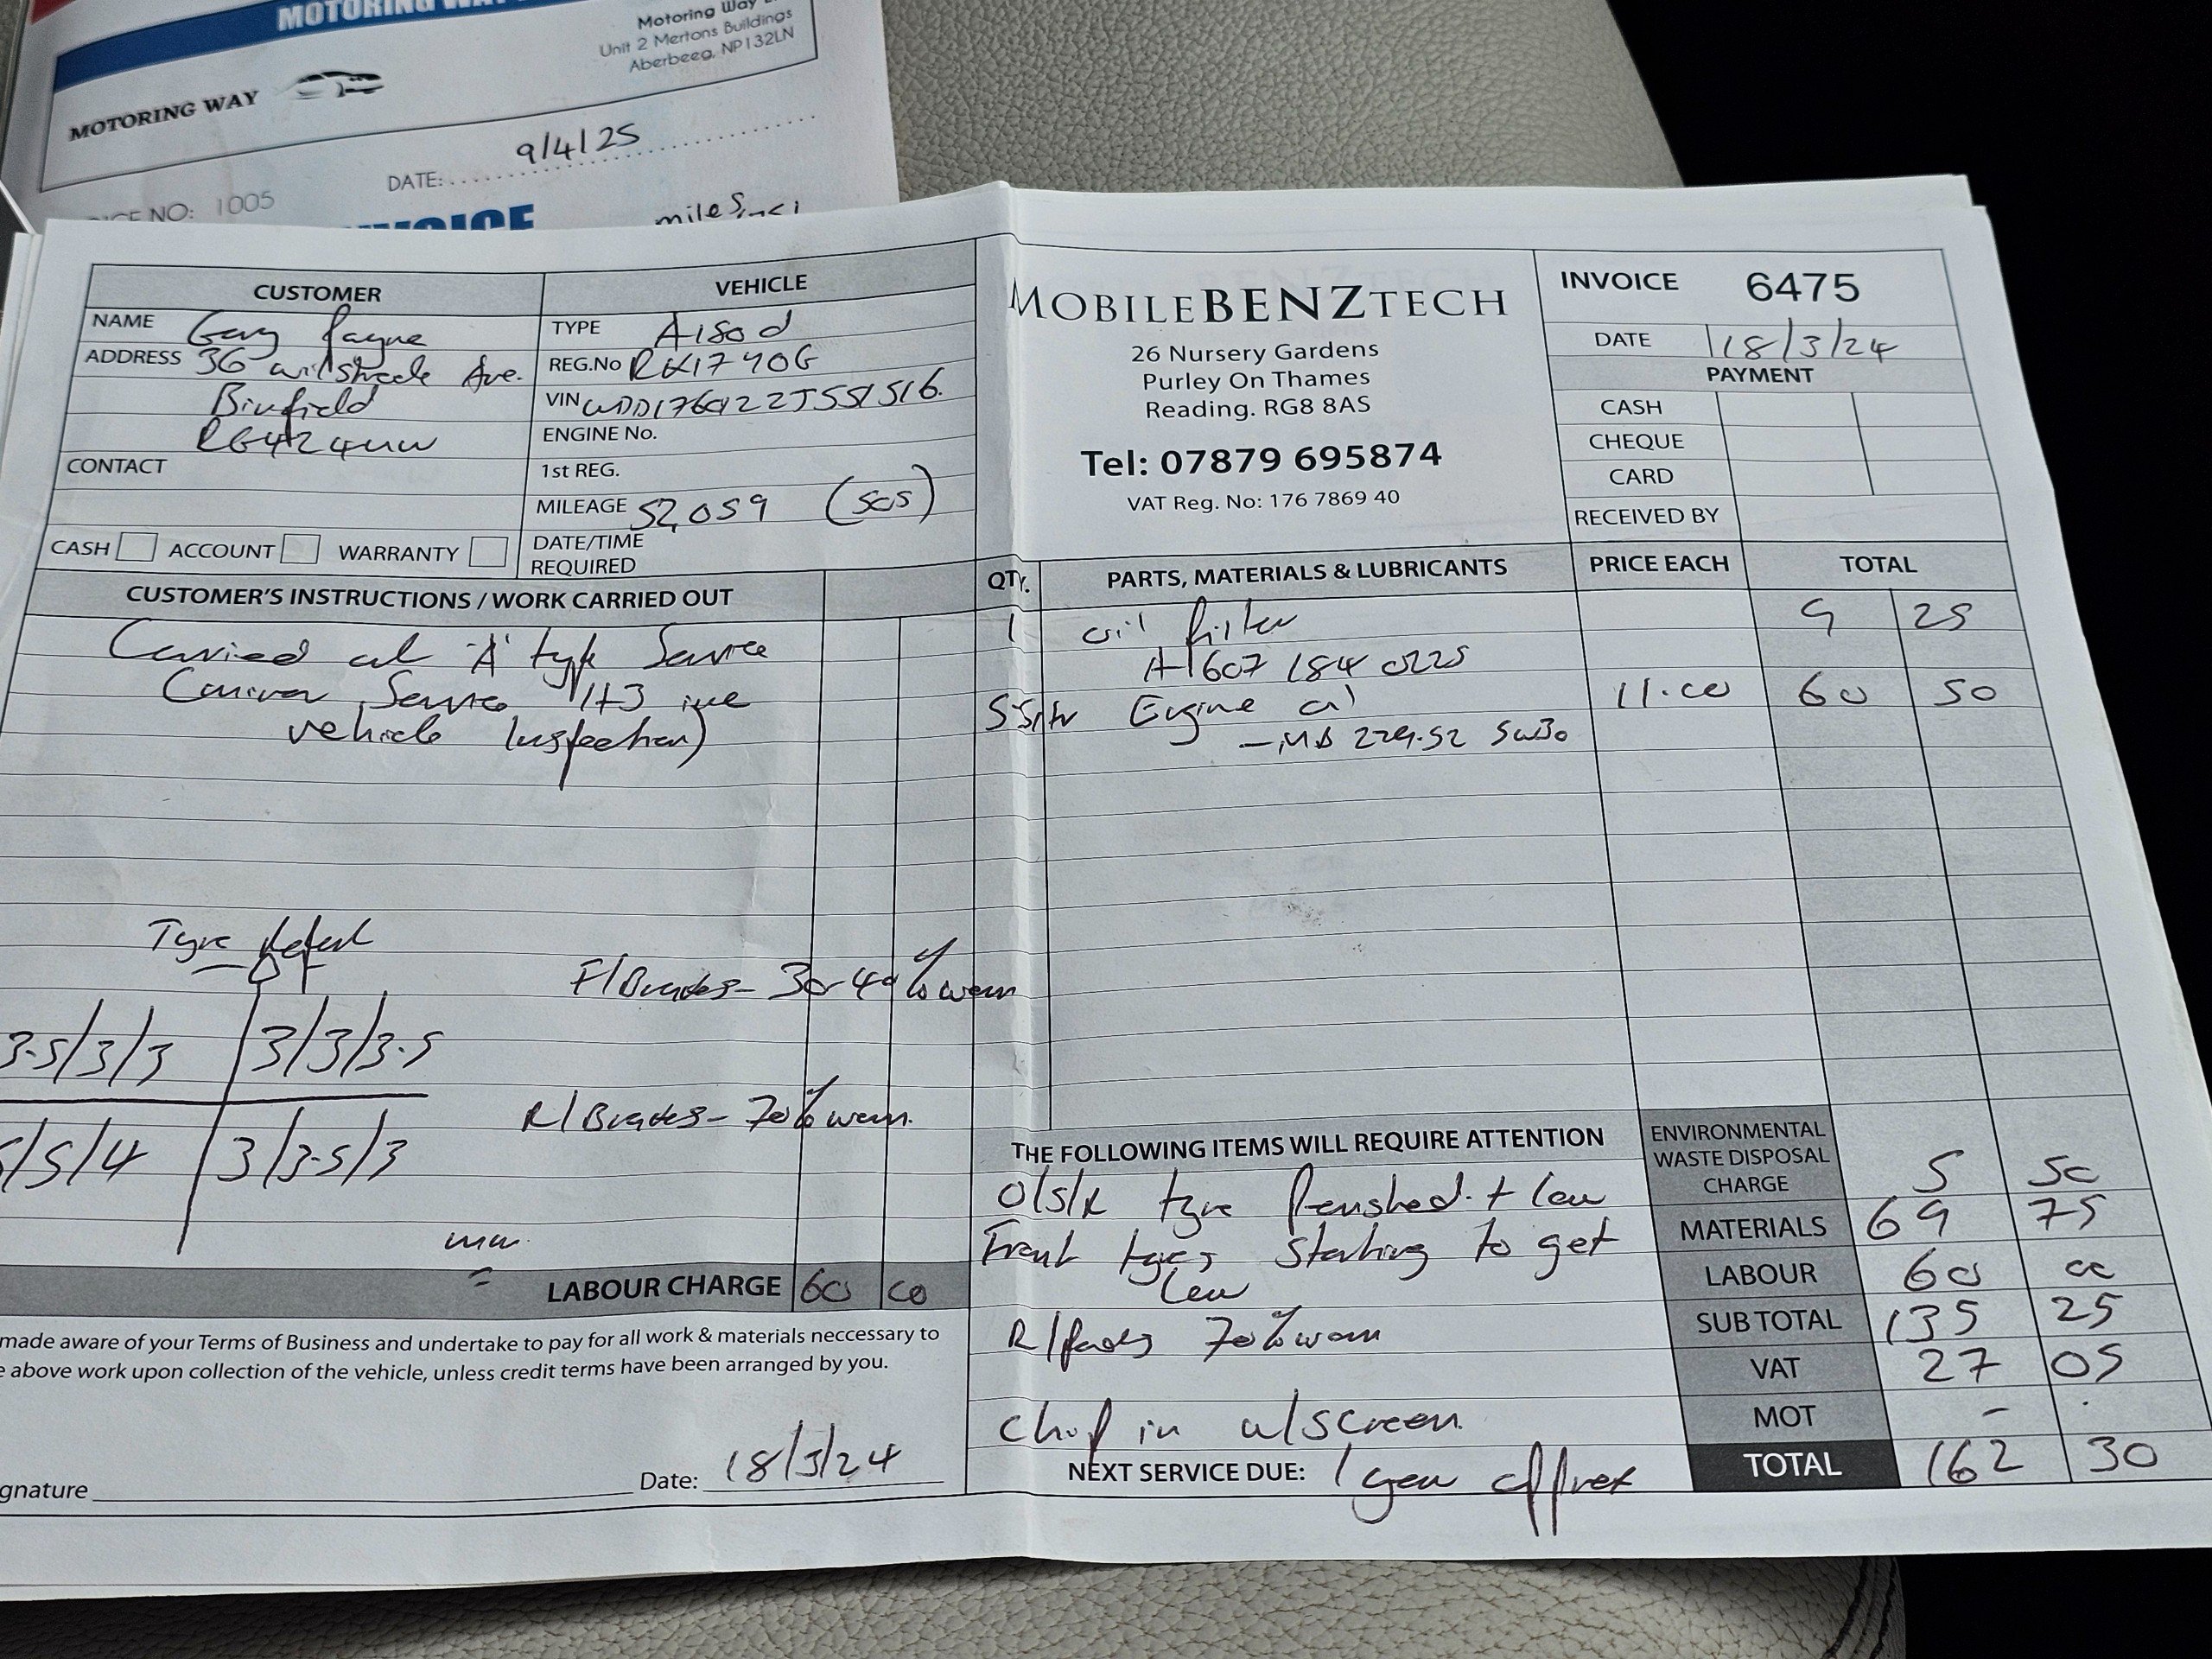 MOTORING WAY
Motoring Way
Unit 2 Mertons Buildings
Aberbeeg, NP132LN
MOTORING WAY
DATE: 9/4/25
ICE NO: 1005
INVOICE
miles
CUSTOMER
VEHICLE
NAME Gary Payne
TYPE A180d
ADDRESS 36 Ave.
REG.No
Binfield
VIN
RG42 4UW
ENGINE No.
CONTACT
1st REG.
MILEAGE 52,059 (SCS)
CASH ACCOUNT WARRANTY
DATE/TIME
REQUIRED
MOBILEBENZTECH
26 Nursery Gardens
Purley On Thames
Reading. RG8 8AS
Tel: 07879 695874
VAT Reg. No: 176 7869 40
INVOICE 6475
DATE 18/3/24
PAYMENT
CASH
CHEQUE
CARD
RECEIVED BY
CUSTOMER'S INSTRUCTIONS / WORK CARRIED OUT
Carried out 'A' type Service
Service 1+3 inc
vehicle Inspection)
Tyre
3.5/3/3 3/3/3.5
/5/4 3/3.5/3
mm
F/Brakes - 30-40% worn
R/Brakes - 70% worn.
LABOUR CHARGE 60 00
made aware of your Terms of Business and undertake to pay for all work & materials neccessary to
above work upon collection of the vehicle, unless credit terms have been arranged by you.
gnature
Date: 18/3/24
QTY. PARTS, MATERIALS & LUBRICANTS PRICE EACH TOTAL
1 oil filter 9 25
A 607 184 0225
5.5ltr Engine oil 11.00 60 50
- MB 229.52 5w30
THE FOLLOWING ITEMS WILL REQUIRE ATTENTION
O/S/R tyre Perished. + low
Front tyres starting to get
low
R/pads 70% worn
chip in w/screen.
NEXT SERVICE DUE: 1 year approx
ENVIRONMENTAL
WASTE DISPOSAL
CHARGE 5 50
MATERIALS 69 75
LABOUR 60 00
SUB TOTAL 135 25
VAT 27 05
MOT -
TOTAL 162 30